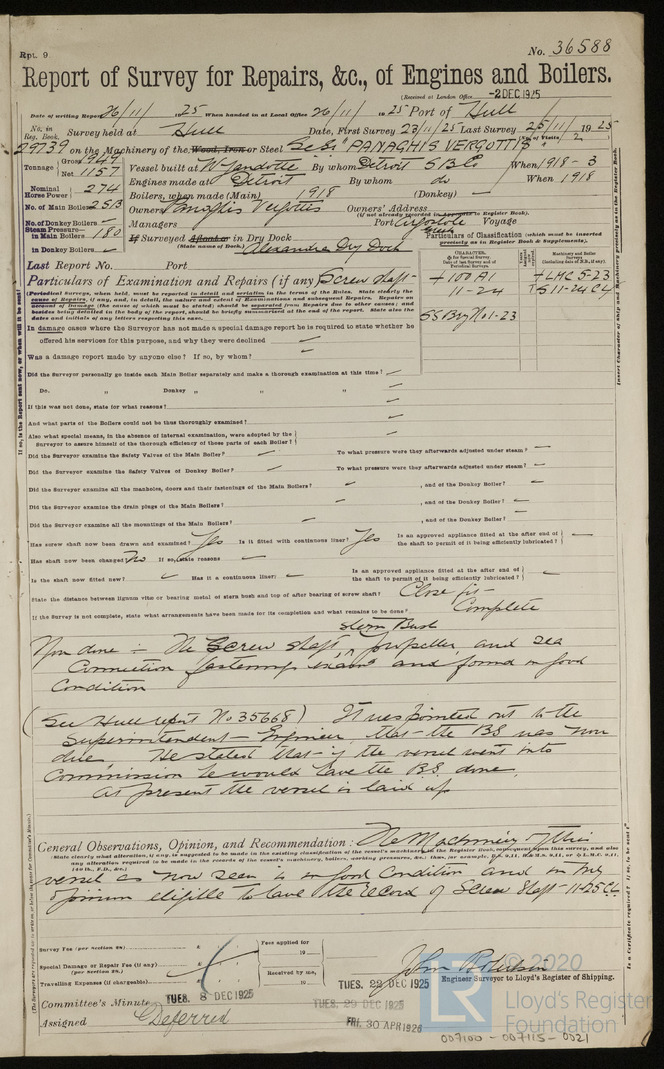 Rpt. 9
No. 36588
Report of Survey for Repairs, &c., of Engines and Boilers.
(Received at London Office -2 DEC 1925
Date of writing Report 26/11/ 1925 When handed in at Local Office 26/11/ 1925 Port of Hull
No. in Reg. Book. Survey held at Hull Date, First Survey 23/11/25 Last Survey 25/11/ 1925
(No. of Visits 2)
29739 on the Machinery of the Wood, Iron or Steel "PANAGHIS VERGOTTIS"
Tonnage Gross 1949 Net 1157 Vessel built at Wyandotte By whom Detroit S B Co When 1918-3
Nominal Horse Power 274 Engines made at Detroit By whom do When 1918
No. of Main Boilers 2SB Boilers, when made (Main) 1918 (Donkey) —
No. of Donkey Boilers — Owners Vergottis Owners' Address
(if not already recorded in Register Book).
Steam Pressure in Main Boilers 180 Managers Port Voyage
in Donkey Boilers — If Surveyed Afloat or in Dry Dock Alexandra Dry Dock
(State name of Dock.)
Particulars of Classification (which must be inserted precisely as in Register Book & Supplements).
Last Report No. Port
+ 100 A1 + LMC 5-23
11-24 TS 11-24 CL
SS No1-23
Particulars of Examination and Repairs (if any) Screw shaft
In damage cases where the Surveyor has not made a special damage report he is required to state whether he
offered his services for this purpose, and why they were declined —
Was a damage report made by anyone else? If so, by whom? —
Did the Surveyor personally go inside each Main Boiler separately and make a thorough examination at this time? —
Do. " Donkey " " " —
If this was not done, state for what reasons? —
And what parts of the Boilers could not be thus thoroughly examined? —
Also what special means, in the absence of internal examination, were adopted by the
Surveyor to assure himself of the thorough efficiency of those parts of each Boiler? —
Did the Surveyor examine the Safety Valves of the Main Boiler? — To what pressure were they afterwards adjusted under steam? —
Did the Surveyor examine the Safety Valves of Donkey Boiler? — To what pressure were they afterwards adjusted under steam? —
Did the Surveyor examine all the manholes, doors and their fastenings of the Main Boilers? — , and of the Donkey Boiler? —
Did the Surveyor examine the drain plugs of the Main Boilers? — , and of the Donkey Boiler? —
Did the Surveyor examine all the mountings of the Main Boilers? — , and of the Donkey Boiler? —
Has screw shaft now been drawn and examined? Yes Is it fitted with continuous liner? Yes Is an approved appliance fitted at the after end of the shaft to permit of it being efficiently lubricated? —
Has shaft now been changed? No If so, state reasons —
Is the shaft now fitted new? — Has it a continuous liner? — Is an approved appliance fitted at the after end of the shaft to permit of it being efficiently lubricated? —
State the distance between lignum vitæ or bearing metal of stern bush and top of after bearing of screw shaft? Close fit
If the Survey is not complete, state what arrangements have been made for its completion and what remains to be done? Complete
Stern Bush
Now done :- The Screw shaft, propeller, and sea
Connection fastenings exam'd and found in good
Condition
(See Hull report No 35668) It was pointed out to the
Superintendent Engineer that the BS was now
due. He stated that if the vessel went into
Commission he would have the BS done.
At present the vessel is laid up
General Observations, Opinion, and Recommendation:— The Machinery of this
vessel as now seen is in good Condition and in my
opinion eligible to have the record of Screw Shaft - 11-25 CL
Survey Fee (per Section 28) £ : : Fees applied for 19
Special Damage or Repair Fee (if any) (per Section 28.) £ : :
Travelling Expenses (if chargeable) £ : : Received by me, 19
John Robertson
Engineer Surveyor to Lloyd's Register of Shipping.
TUES. 22 DEC 1925
Committee's Minute TUES. 8 DEC 1925 TUES. 29 DEC 1925
Assigned Deferred FRI. 30 APR 1926
© 2020
Lloyd's Register
Foundation
007100 - 007115 - 0021